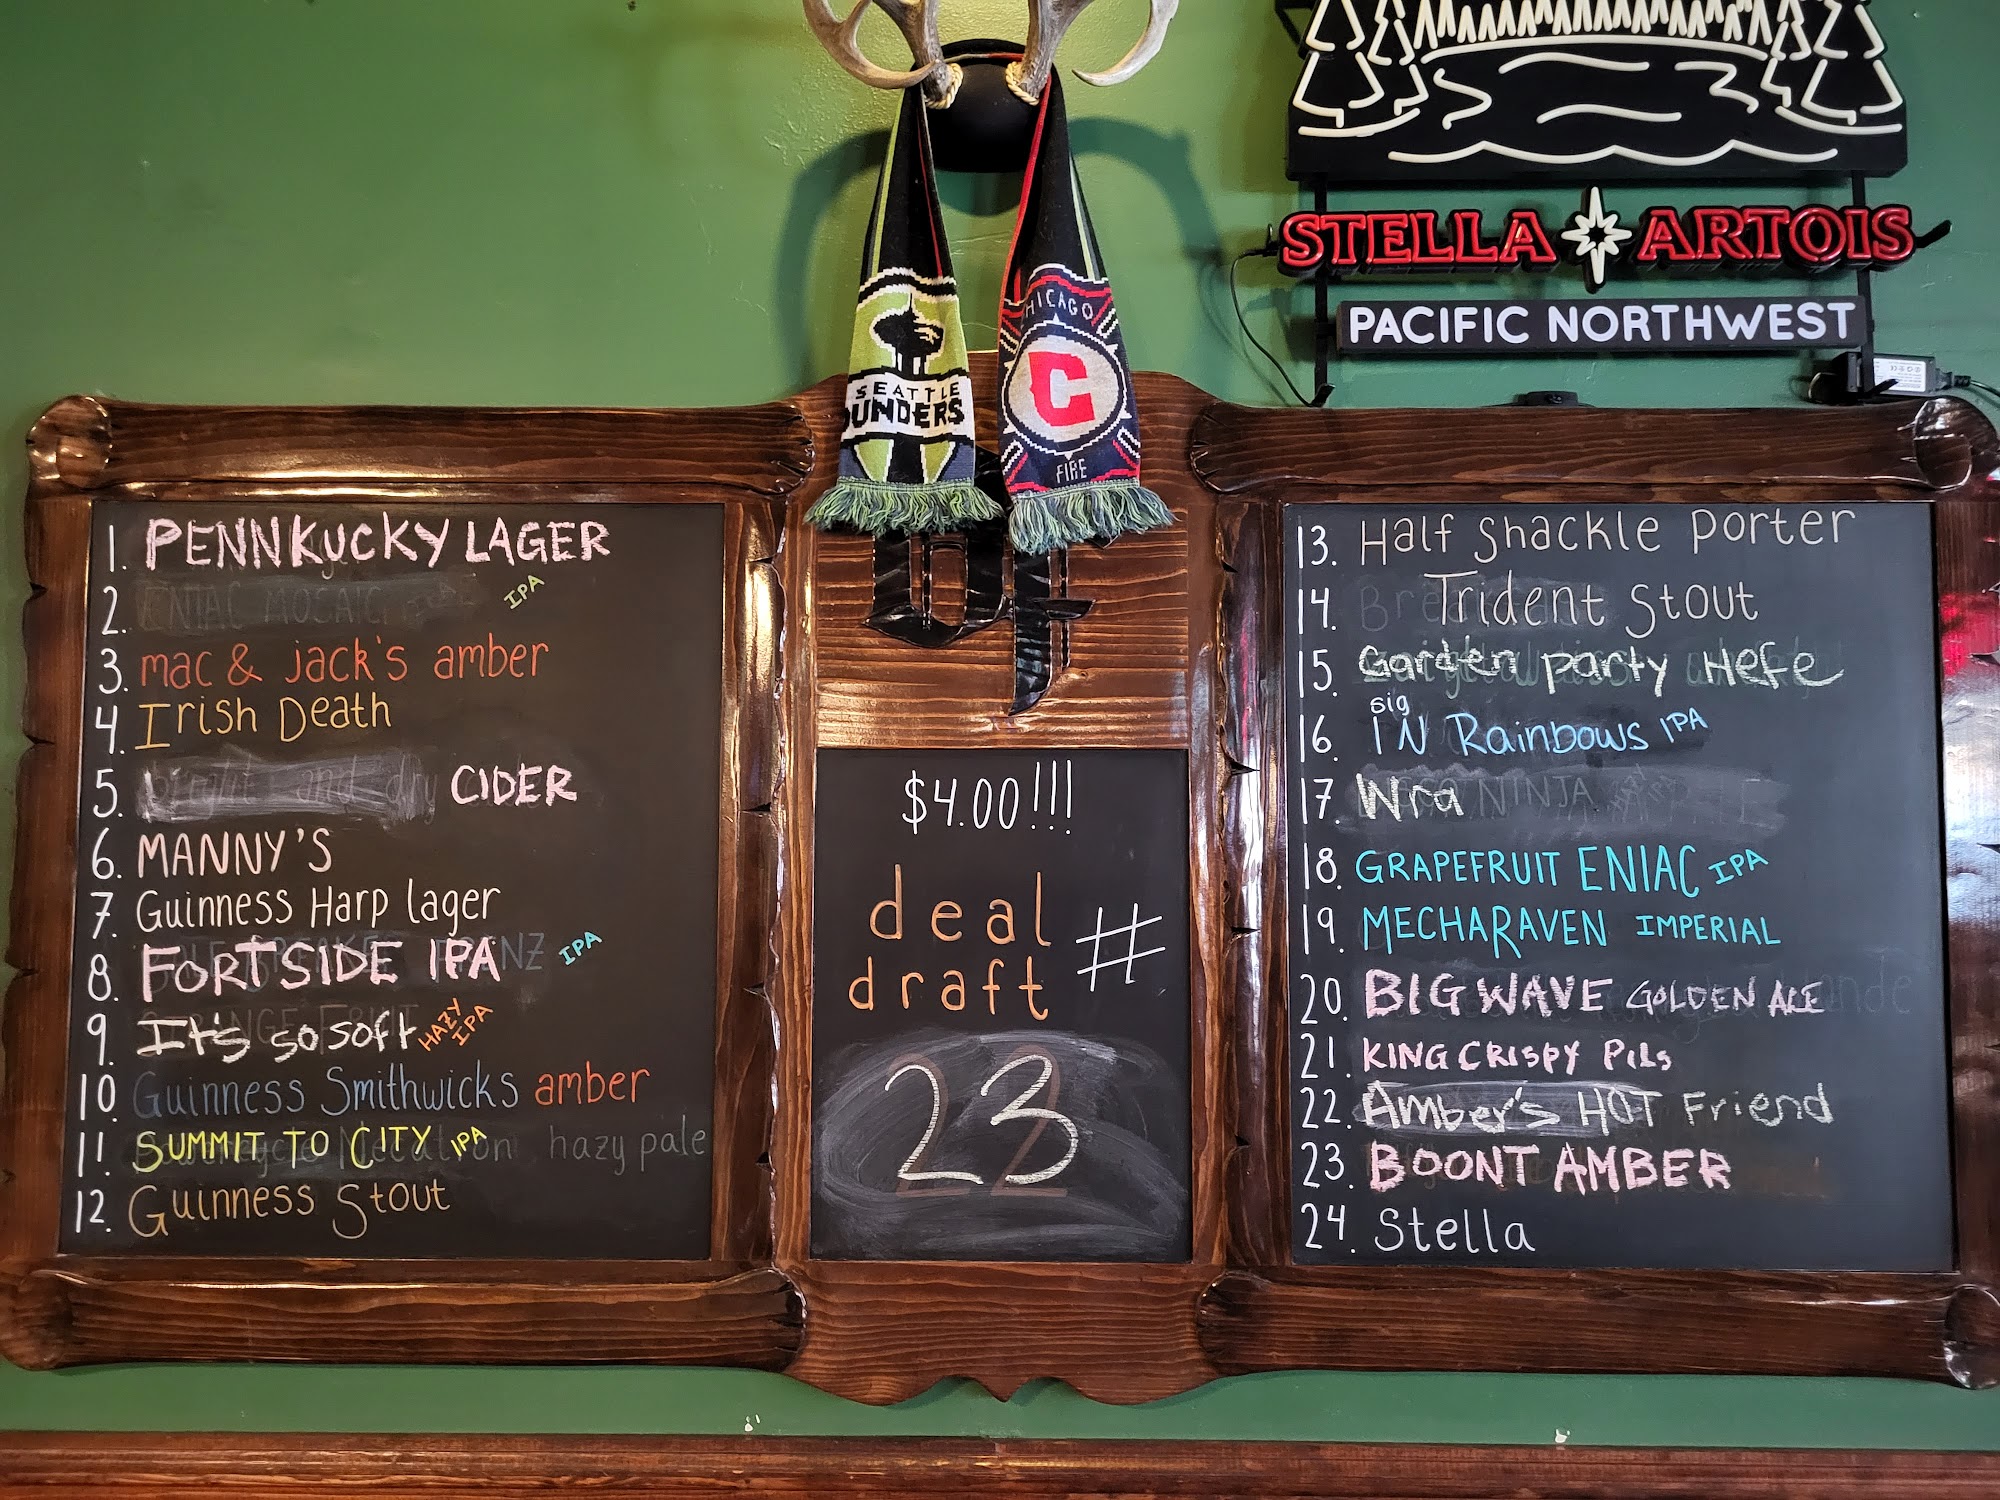 STELLA ARTOIS
PACIFIC NORTHWEST
SEATTLE
OUNDERS
HICAGO
C
FIRE
1. PENNKUCKY LAGER
2. ENIAC MOSAIC IPA
3. mac & jack's amber
4. Irish Death
5. bright and dry CIDER
6. MANNY'S
7. Guinness Harp lager
8. FORTSIDE IPA IPA
9. It's so soft HAZY IPA
10. Guinness Smithwicks amber
11. SUMMIT TO CITY IPA hazy pale
12. Guinness Stout
$4.00!!!
deal
draft #
23
13. Half Shackle Porter
14. Trident Stout
15. Garden Party Hefe
16. sig IN Rainbows IPA
17. Wra NINJA
18. GRAPEFRUIT ENIAC IPA
19. MECHARAVEN IMPERIAL
20. BIG WAVE GOLDEN ALE
21. KING CRISPY PILS
22. Amber's HOT Friend
23. BOONT AMBER
24. Stella